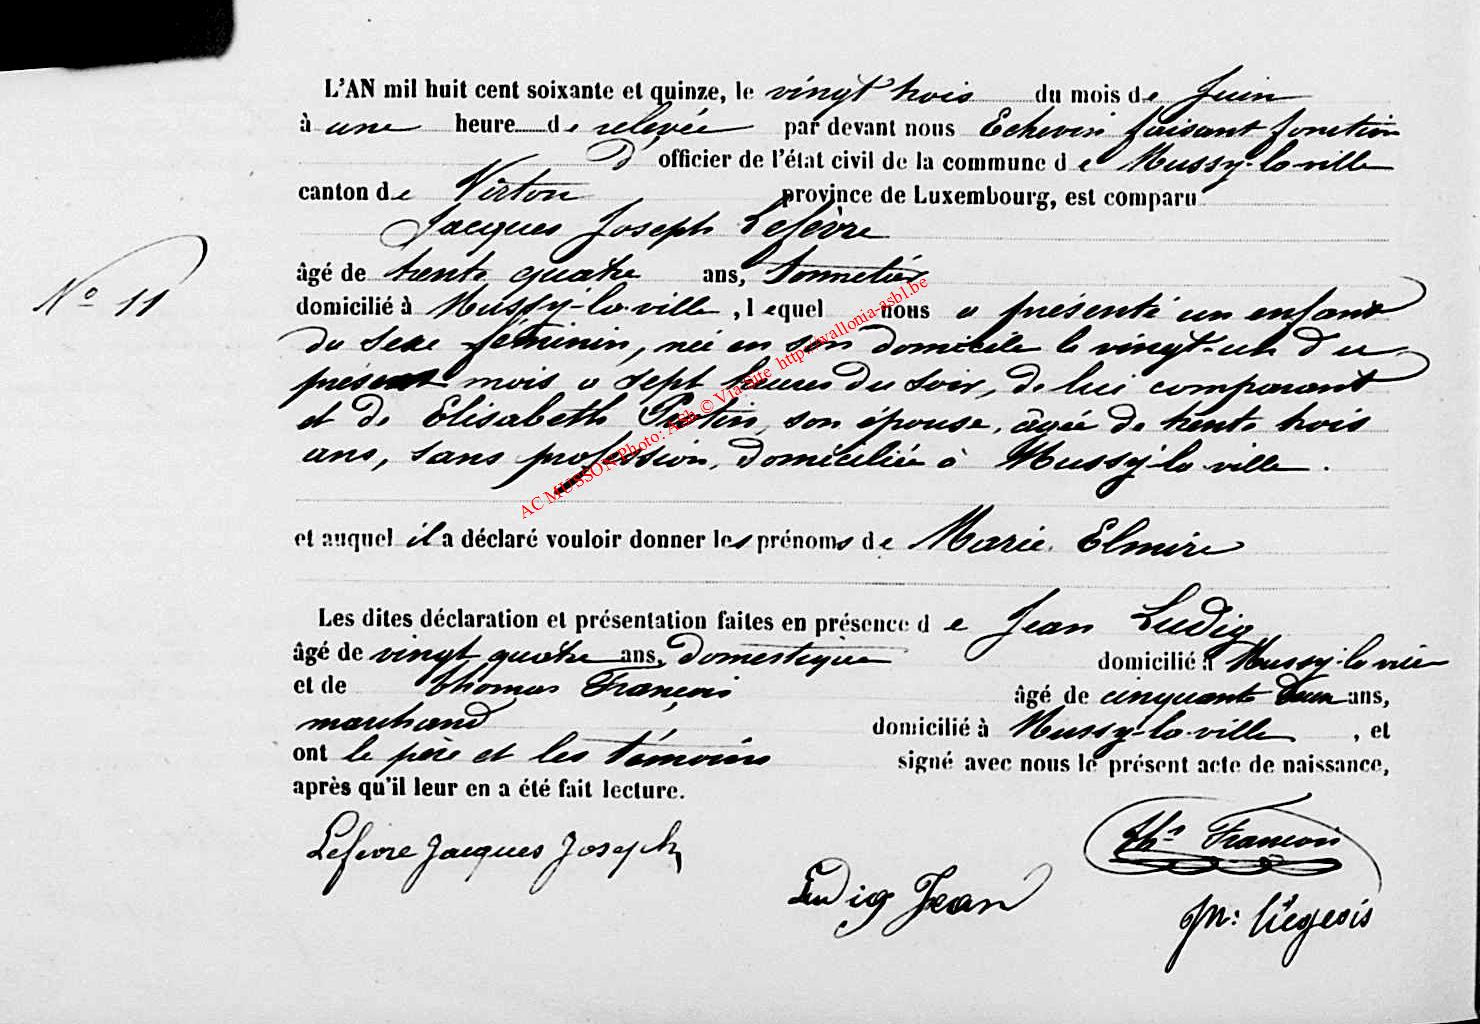 L'AN mil huit cent soixante et quinze, le vingt trois du mois de Juin
à une heure de relevée par devant nous Echevin faisant fonction
d' officier de l'état civil de la commune de Mussy-la-ville
canton de Virton province de Luxembourg, est comparu
Jacques Joseph Lefèvre
âgé de trente quatre ans, tonnelier
N° 11
domicilié à Mussy-la-ville, lequel nous a présenté un enfant
du sexe féminin, née en son domicile le vingt-un du
présent mois à sept heures du soir, de lui comparant
et de Elisabeth son épouse, âgée de trente trois
ans, sans profession, domiciliée à Mussy-la-ville.
AC MUSSON Photo: ASh © Via Site http://wallonia-asbl.be
et auquel il a déclaré vouloir donner les prénoms de Marie Elmire
Les dites déclaration et présentation faites en présence de Jean Ludig
âgé de vingt quatre ans, domestique domicilié à Mussy-la-ville
et de Thomas François âgé de cinquante deux ans,
marchand domicilié à Mussy-la-ville, et
ont le père et les témoins signé avec nous le présent acte de naissance,
après qu'il leur en a été fait lecture.
Lefèvre Jacques Joseph
Ths François
Ludig Jean
Jn: Liégeois